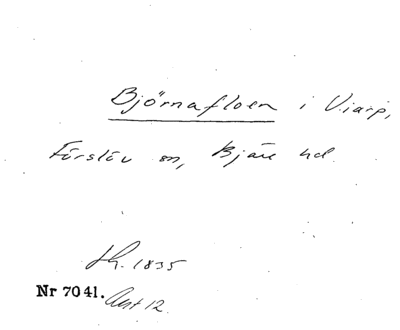 Björnafloen i Viarp,
Förslöv sn, Bjäre hd.
Lh. 1835
Nr 7041. Avst 12.